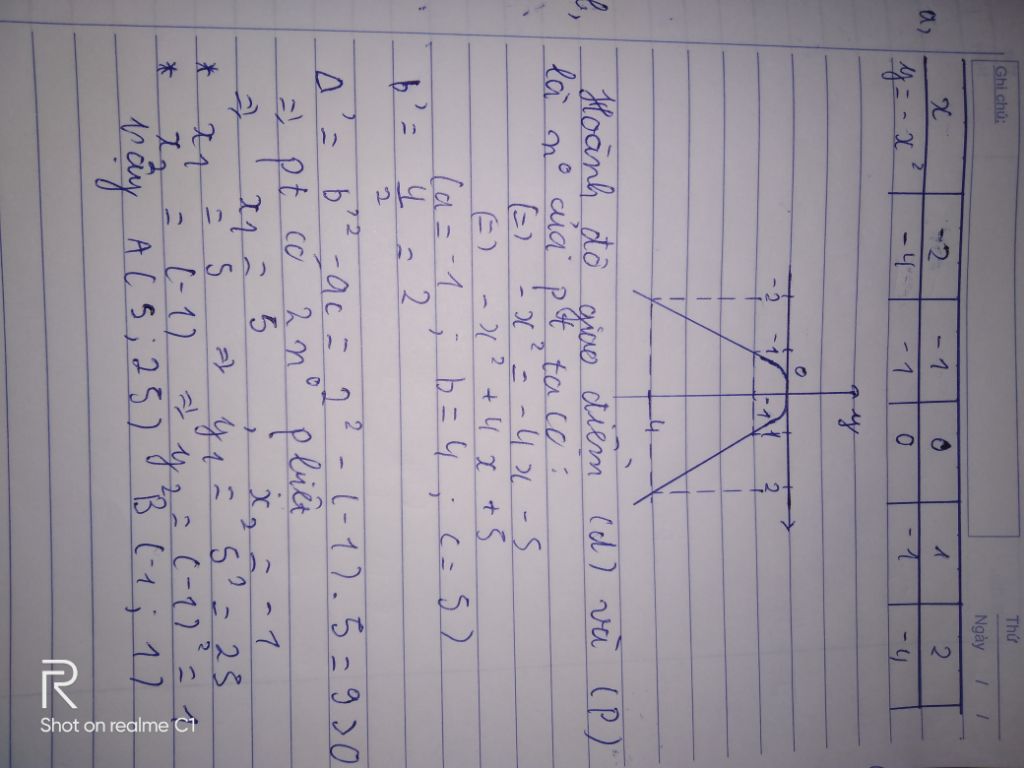 Ghi chú:
Thứ
Ngày / /
a,
x -2 -1 0 1 2
y = - x² -4 -1 0 -1 -4
y
-2 -1 0 1 2
-1
-4
b,
Hoành độ giao điểm (d) và (P)
là n° của pt ta có:
(=) - x² = - 4x - 5
(=) - x² + 4x + 5
(a = -1 ; b = 4 ; c = 5)
b' = 4/2 = 2
Δ' = b'² - ac = 2² - (-1) . 5 = 9 > 0
=> pt có 2 n° pbiệt
=> x1 = 5 , x2 = -1
* x1 = 5 => y1 = 5² = 25
* x2 = (-1) => y2 = (-1)² = 1
Vậy A (5 ; 25) B (-1 ; 1)
R
Shot on realme C1